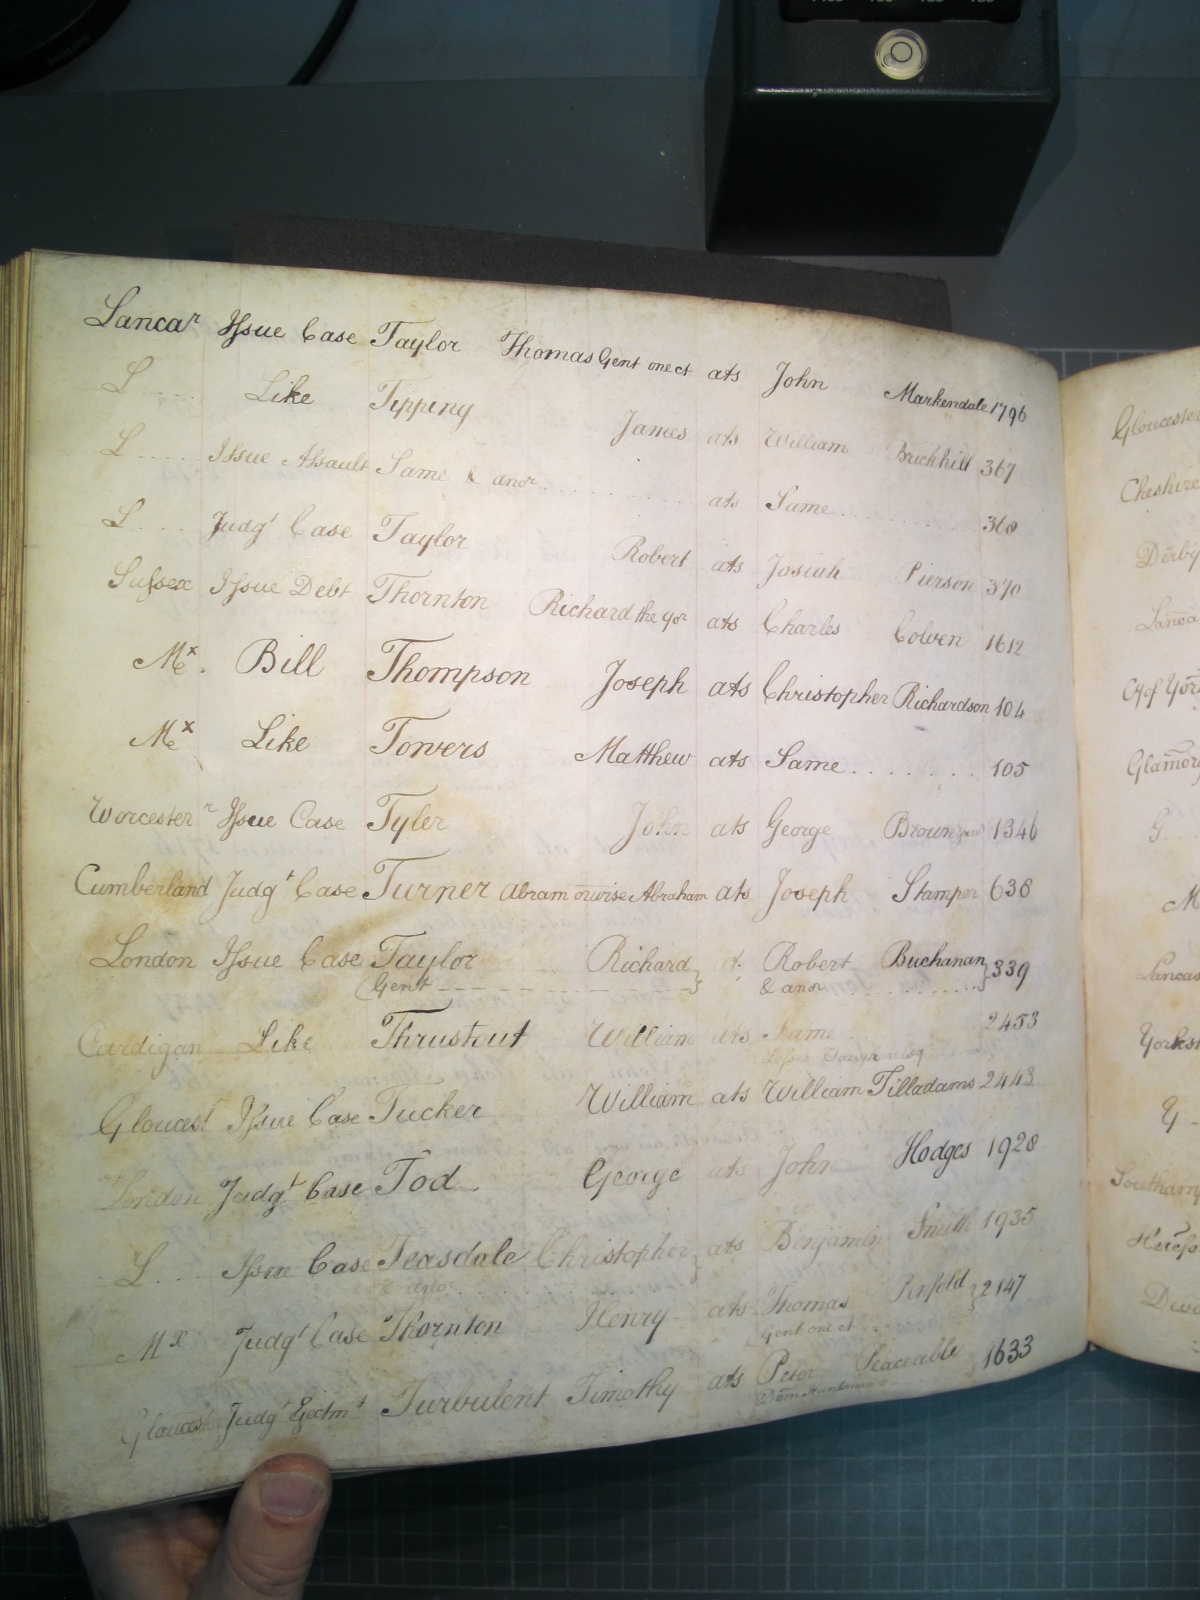 Lancar Issue Case Taylor Thomas Gent one et ats John Markendale 1796
L.... Like Tipping James ats William Brickhill 367
L.... Issue Assault Same & anor ats Same 368
L.... Judgt Case Taylor Robert ats Josiah Pierson 370
Sussex Issue Debt Thornton Richard the yor ats Charles Colven 1612
Mx. Bill Thompson Joseph ats Christopher Richardson 104
Mx Like Towers Matthew ats Same 105
Worcester Issue Case Tyler John ats George Brown 1346
Cumberland Judgt Case Turner Abram orwise Abraham ats Joseph Stamper 638
London Issue Case Taylor Richard ats Robert Buchanan 339
Gent & anor
Cardigan Like Thrustout William ats Same 2453
Gloucest Issue Case Tucker William ats William Tilladams 2443
London Judgt Case Tod George ats John Hodges 1928
L... Issue Case Teasdale Christopher ats Benjamin Smith 1935
& anor
Mx Judgt Case Thornton Henry ats Thomas Penfold 2147
Gent one et
Judgt Ejectmt Turbulent Timothy ats Peter Peaceable 1633
Gloucester
Cheshire
Derby
Lanca
Cy of York
Glamor
G
M
Lancas
Yorksh
Y
Southamp
Devo
PHILIPS